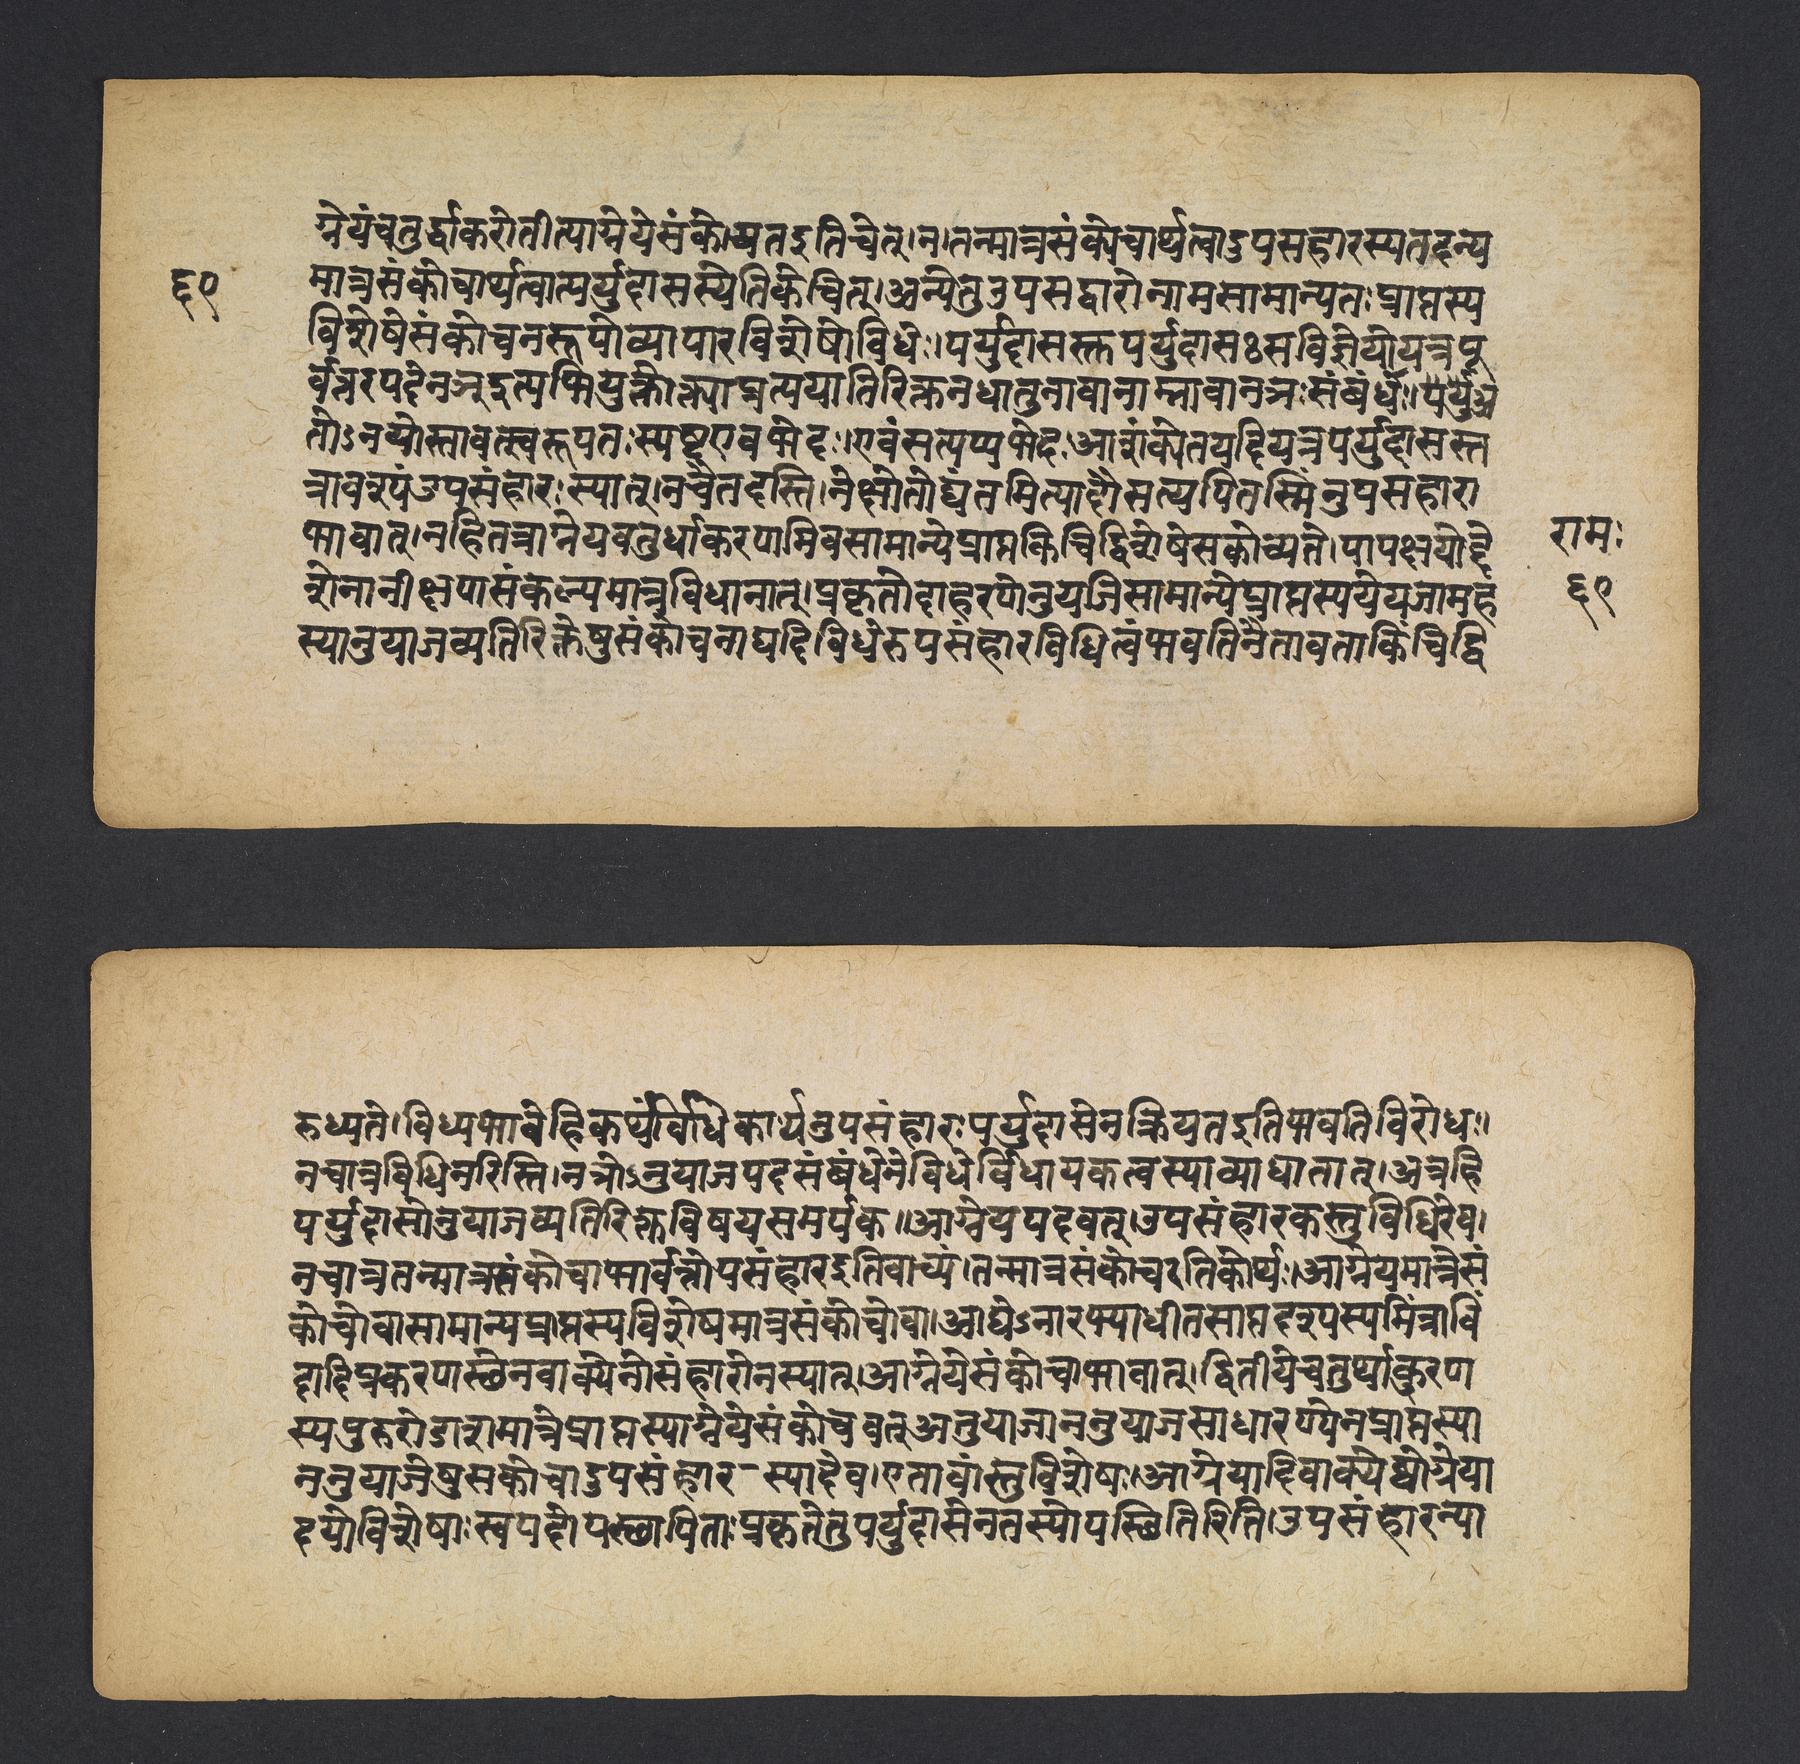 ग्नेयंचतुर्द्धाकरोतीत्याग्नेयेसंकोच्यतइतिचेत्।न।तन्मात्रसंकोचार्थत्वाउपसहारस्यतदन्य
६९
मात्रसंकोचार्थत्वात्पर्युदासस्येतिकेचित्।अन्येतुउपसद्वारोनामसामान्यतःप्राप्तस्य
विशेषेसंकोचनरूपोव्यापारविशेषोविधेः।पर्युदासस्तपर्युदासःसविज्ञेयोयत्रपू
तोऽनयोस्तावत्स्वरूपतःस्पष्टएवभेदः।एवंसत्यप्यभेद।आशंकोतयदियत्रपर्युदासस्त
त्रावश्पंउपसंहारःस्यात्।नचैतदस्ति।नेक्षेतोद्यंतमित्यादौसत्यपितस्मिंनुपसहारा
भावात्।नहितत्राग्नेयचतुर्धाकरणमिवसामान्येप्राप्तकिंचिद्विशेषेसकोच्यते।पापक्षयोद्दे
राम:
शेनानीक्षणसंकल्पमात्रविधानात्।प्रकृतोदाहरणेनुयजिसामान्येप्राप्तस्ययेयजामहे
६९
स्यानुयाजव्यतिरिक्तेषुसंकोचनाद्यदिविधेरुपसंहारविधित्वंभवतिनैतावताकिंचिद्वि
रुध्यते।विध्यभावेहिकथंविधिकार्यनुपसंहारःपर्युदासेनक्रियतइतिभवतिविरोधः।
नचात्रविधिनरिस्ति।नञोऽनुयाजपदसंबंधेनेविधेर्विधायकत्वस्याव्याघातात्।अत्रहि
पर्युदासोनुयाजव्यतिरिक्तविषयसमर्पक॥आग्नेयपदवत्।उपसंहारकस्तुविधिरेव।
नचात्रतन्मात्रसंकोचाभार्वन्नोपसंहारइतिवाच्यं।तन्मात्रसंकोचइतिकोर्थः।आग्नेयमात्रेसं
कोचोवासामान्यप्राप्तस्यविशेषमात्रसंकोचोवा।आद्येऽनारभ्याधीतसाप्तदश्पस्यमित्राविं
दादिप्रकरणस्थेनवाक्येनोसंहारोनस्यात्।आग्नेयेसंकोचाभावात्।द्वितीयेचतुर्थाकरण
स्यपुरुरोडाशमात्रेप्राप्तस्याग्नेयेसंकोचवत्अनुयाजाननुयाजसाधारण्येनप्राप्तस्या
ननुयाजेषुसकोचाउपसंहार-स्यादेव।एतावांस्तुविशेषः।आग्नेयादिवाक्येष्वाग्नेया
दयोविशेषाःस्वपदोपस्थापिताःप्रकृतेतुपर्युदासेनतस्योपस्थितिरिति।उपसंहारन्या